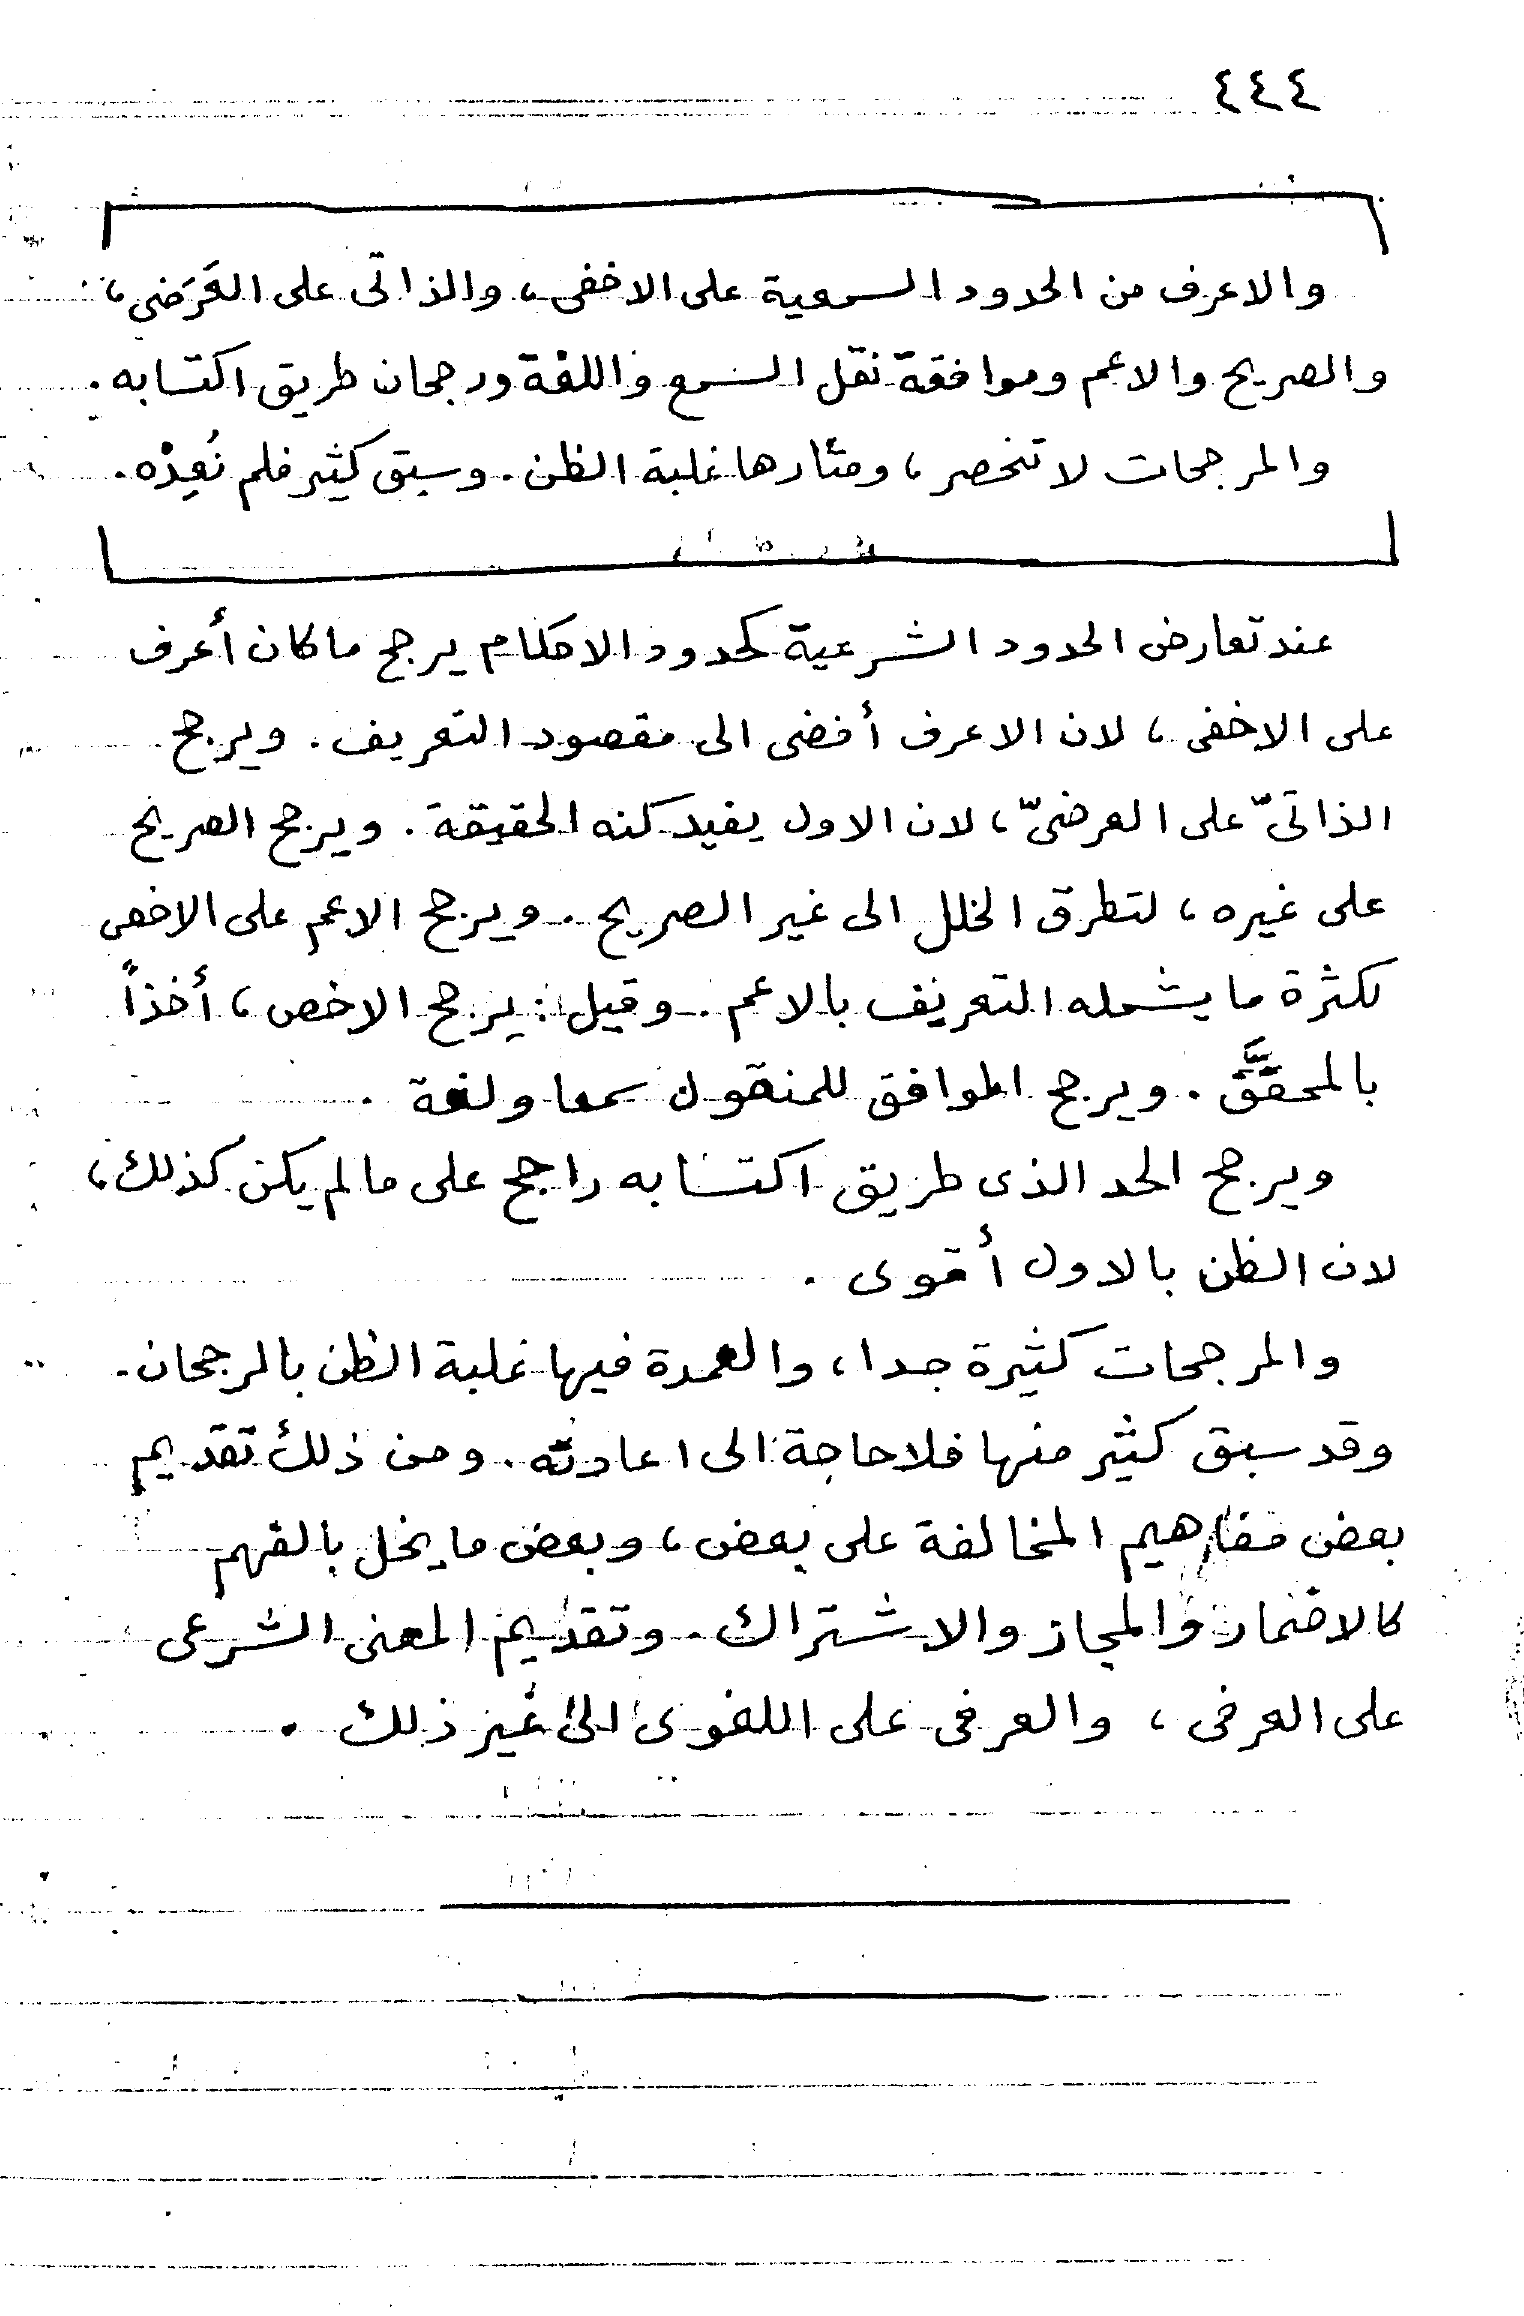 ٤٤٤
والاعرف من الحدود السمعية على الاخفى، والذاتى على العَرَضى،
والصريح والاعم وموافقة نقل السمع واللغة ورجحان طريق اكتسابه.
والمرجحات لا تنحصر، ومثارها غلبة الظن. وسبق كثير فلم نُعِدْه.
عند تعارض الحدود الشرعية كحدود الاحكام يرجح ما كان أعرف
على الاخفى، لان الاعرف أفضى الى مقصود التعريف. ويرجح
الذاتىّ على العرضىّ، لان الاول يفيد كنه الحقيقة. ويرجح الصريح
على غيره، لتطرق الخلل الى غير الصريح. ويرجح الاعم على الاخص
لكثرة ما يشمله التعريف بالاعم. وقيل: يرجح الاخص، أخذاً
بالمحقَّق. ويرجح الموافق للمنقول سمعا ولغة.
ويرجح الحد الذى طريق اكتسابه راجح على ما لم يكن كذلك،
لان الظن بالاول أقوى.
والمرجحات كثيرة جدا، والعمدة فيها غلبة الظن بالرجحان.
وقد سبق كثير منها فلا حاجة الى اعادته. ومن ذلك تقديم
بعض مفاهيم المخالفة على بعض، وبعض ما يخل بالفهم
كالاضمار والمجاز والاشتراك. وتقديم المعنى الشرعى
على العرفى، والعرفى على اللغوى الى غير ذلك.